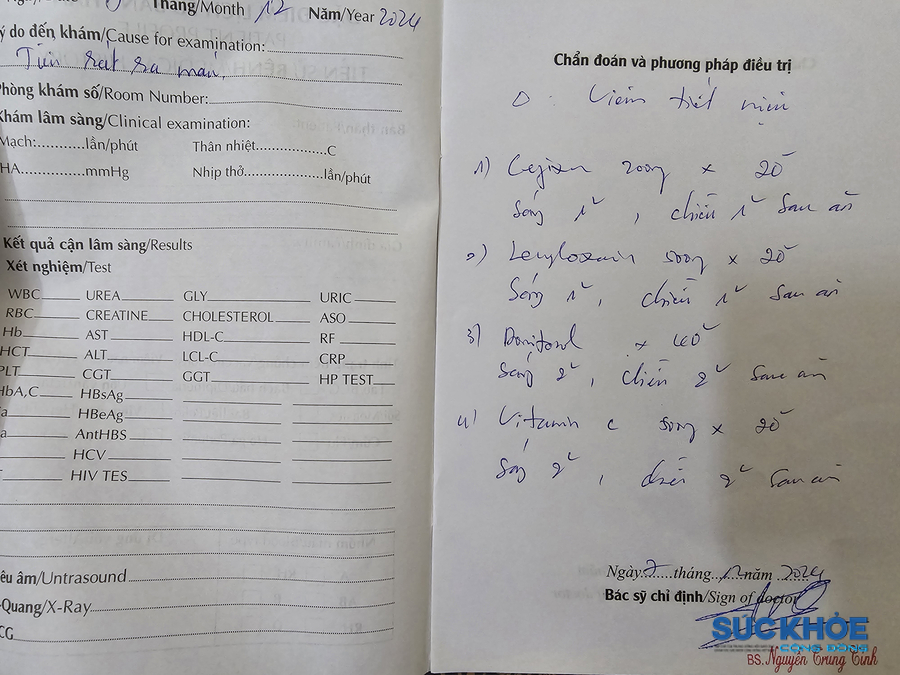 Tháng/Month 12 Năm/Year 2024
ý do đến khám/Cause for examination:
Tiểu rát ra máu.
Phòng khám số/Room Number:
Khám lâm sàng/Clinical examination:
Mạch:...........lần/phút Thân nhiệt..................C
HA................mmHg Nhịp thở....................lần/phút
Kết quả cận lâm sàng/Results
Xét nghiệm/Test
WBC UREA GLY URIC
RBC CREATINE CHOLESTEROL ASO
Hb AST HDL-C RF
HCT ALT LCL-C CRP
PLT CGT GGT HP TEST
HbA,C HBsAg
a HBeAg
a AntHBS
HCV
HIV TES
êu âm/Untrasound
-Quang/X-Ray
CG
Chẩn đoán và phương pháp điều trị
D: Viêm tiết niệu
1) 200mg x 20
Sáng 1v, chiều 1v sau ăn
2) 500mg x 20
Sáng 1v, chiều 1v sau ăn
3) x 40
Sáng 2v, chiều 2v sau ăn
4) Vitamin c 500mg x 20
Sáng 2v, chiều 2v sau ăn
Ngày 7 tháng 12 năm 2024
Bác sỹ chỉ định/Sign of doctor
SỨC KHỎE
CỘNG ĐỒNG
BS. Nguyễn Trung Tính